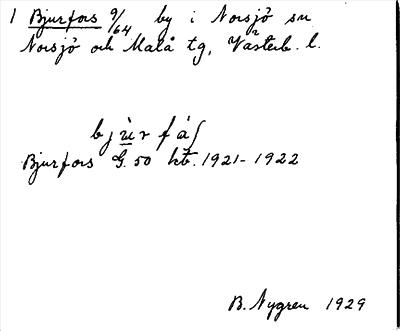 1 Bjurfors 9/64 by i Norsjö sn
Norsjö och Malå tg, Västerb. l.
bjùr fáʃ
Bjurfors G. 50 kb. 1921-1922
B. Nygren 1929